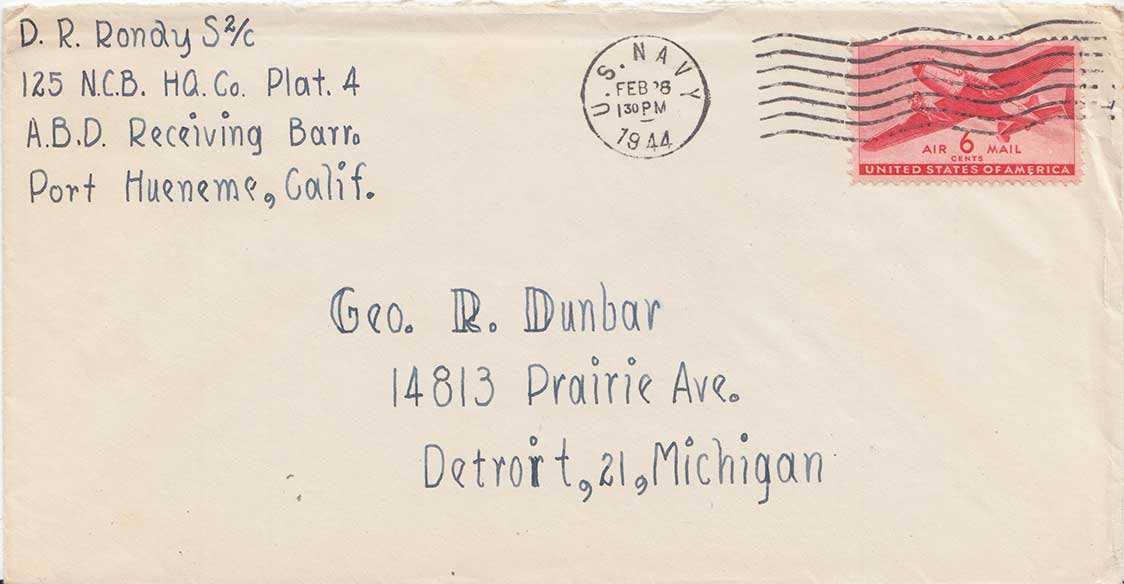 D. R. Rondy S2/c
125 N.C.B. HQ. Co. Plat. 4
A.B.D. Receiving Barr.
Port Hueneme, Calif.
U.S. NAVY
FEB 28
1 30 PM
1944
AIR 6 MAIL
CENTS
UNITED STATES OF AMERICA
Geo. R. Dunbar
14813 Prairie Ave.
Detroit, 21, Michigan